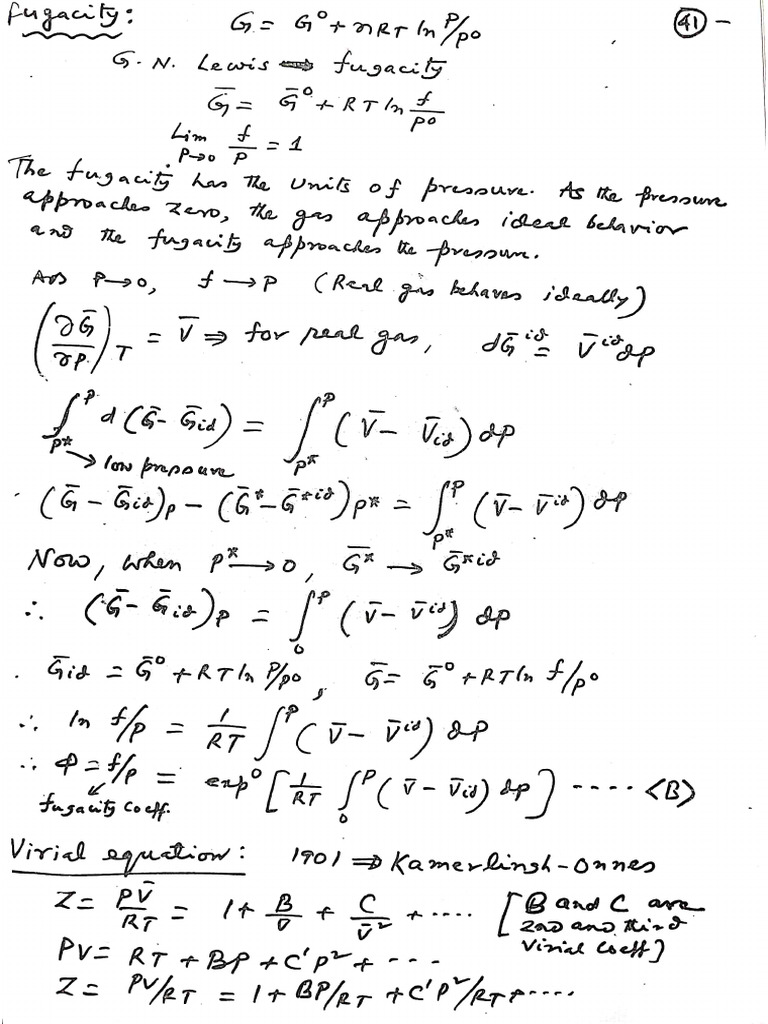 fugacity: G = G° + nRT ln P/P° (41) -
G. N. Lewis ⇒ fugacity
G̅ = G̅° + RT ln f/P°
Lim P→0 f/P = 1
The fugacity has the units of pressure. As the pressure
approaches zero, the gas approaches ideal behavior
and the fugacity approaches the pressure.
As P→0, f → P (Real gas behaves ideally)
(∂G̅/∂P)T = V̅ ⇒ for real gas, dG̅^id = V̅^id dP
∫_P*^P d(G̅ - G̅id) = ∫_P*^P (V̅ - V̅id) dP
→ low pressure
(G̅ - G̅id)P - (G̅* - G̅*id)P* = ∫_P*^P (V̅ - V̅id) dP
Now, when P* → 0, G̅* → G̅*id
∴ (G̅ - G̅id)P = ∫_0^P (V̅ - V̅id) dP
. G̅id = G̅° + RT ln P/P°, G̅ = G̅° + RT ln f/P°
∴ ln f/P = 1/RT ∫_0^P (V̅ - V̅id) dP
∴ Φ = f/P = exp° [1/RT ∫_0^P (V̅ - V̅id) dP] ---- <B>
fugacity coeff.
Virial equation: 1901 ⇒ Kamerlingh-Onnes
Z = PV̅/RT = 1 + B/V̅ + C/V̅² + ---- [B and C are
2nd and third
Virial coeff]
PV = RT + BP + C'P² + ---
Z = PV/RT = 1 + BP/RT + C'P²/RT + ----